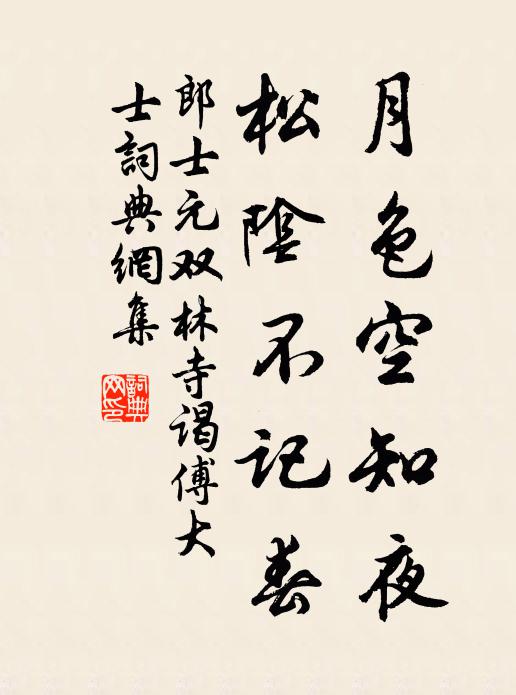 月色空知夜
松陰不记春
郎士元双林寺谒傅大
士詞典網集
詞典网印